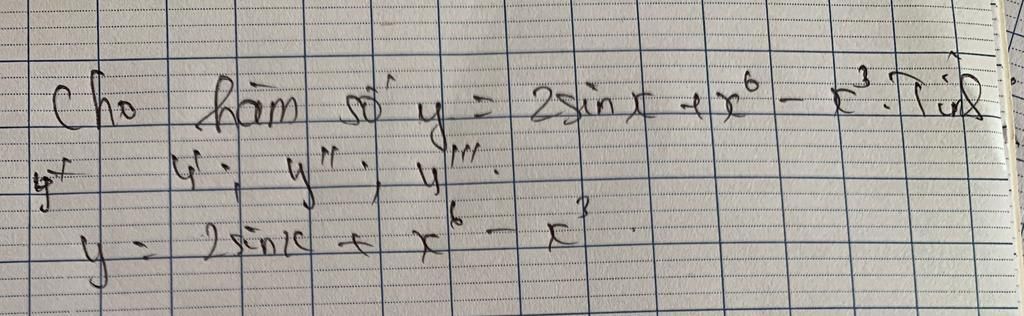 Cho hàm số y = 2sinx + x⁶ - x³. Tính
y'; y''; y'''.
y = 2sinx + x⁶ - x³.